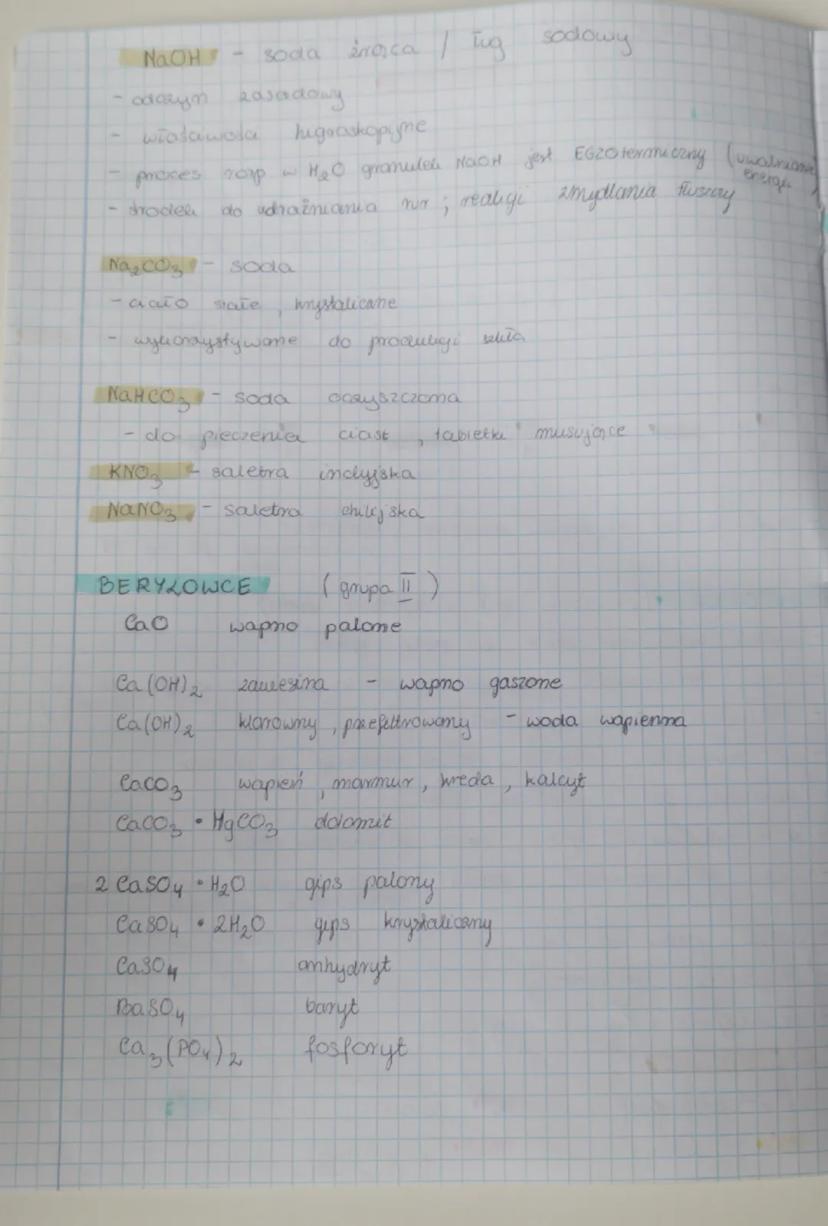 NaOH - soda żrąca / ług sodowy
- odczyn zasadowy
- właściwości higroskopijne
- proces rozp w H₂O granulek NaOH jest EGZOtermiczny (uwalnianie energii)
- środek do udrażniania rur ; reakcji zmydlania tłuszczy
Na₂CO₃ - soda
- ciało stałe, krystaliczne
- wykorzystywane do produkcji szkła
NaHCO₃ - soda oczyszczona
- do pieczenia ciast, tabletki musujące
KNO₃ - saletra indyjska
NaNO₃ - saletra chilijska
BERYLOWCE (grupa II)
CaO wapno palone
Ca(OH)₂ zawiesina - wapno gaszone
Ca(OH)₂ klarowny, przefiltrowany - woda wapienna
CaCO₃ wapień, marmur, kreda, kalcyt
CaCO₃ • HgCO₃ dolomit
2 CaSO₄ • H₂O gips palony
CaSO₄ • 2H₂O gips krystaliczny
CaSO₄ anhydryt
BaSO₄ baryt
Ca₃(PO₄)₂ fosforyt